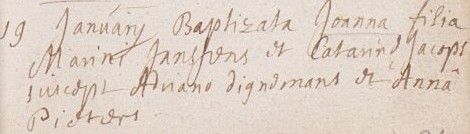 19 Januarij Baptizata Joanna filia
Marini Jansens et Catarinæ Jacops
suscept Adriano dignemans et Anna
Pieters